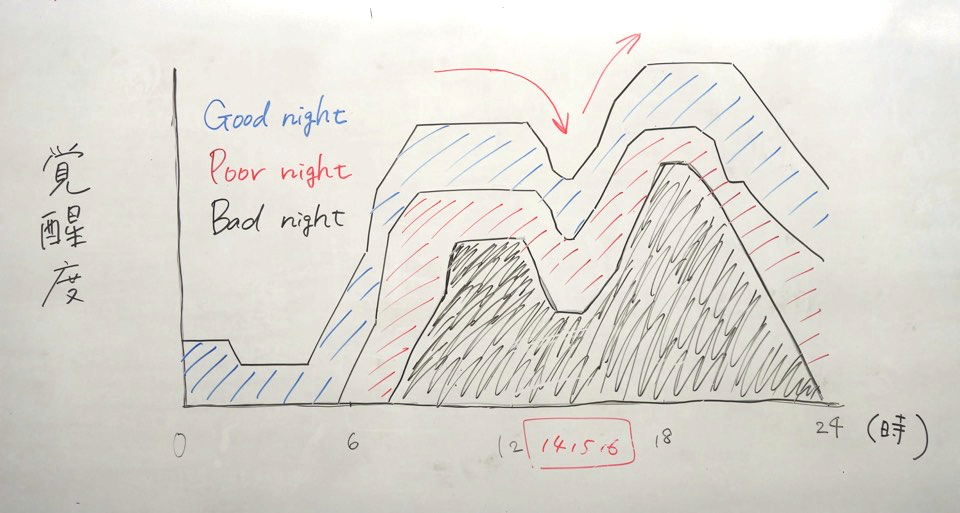 覚醒度
Good night
Poor night
Bad night
0 6 12 14.15.16 18 24 (時)